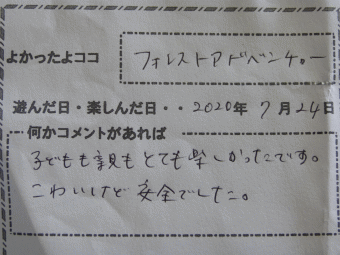 よかったよココ
フォレストアドベンチャー
遊んだ日・楽しんだ日・・2020年7月24日
何かコメントがあれば
子どもも親もとても楽しかったです。
こわいけど安全でした。